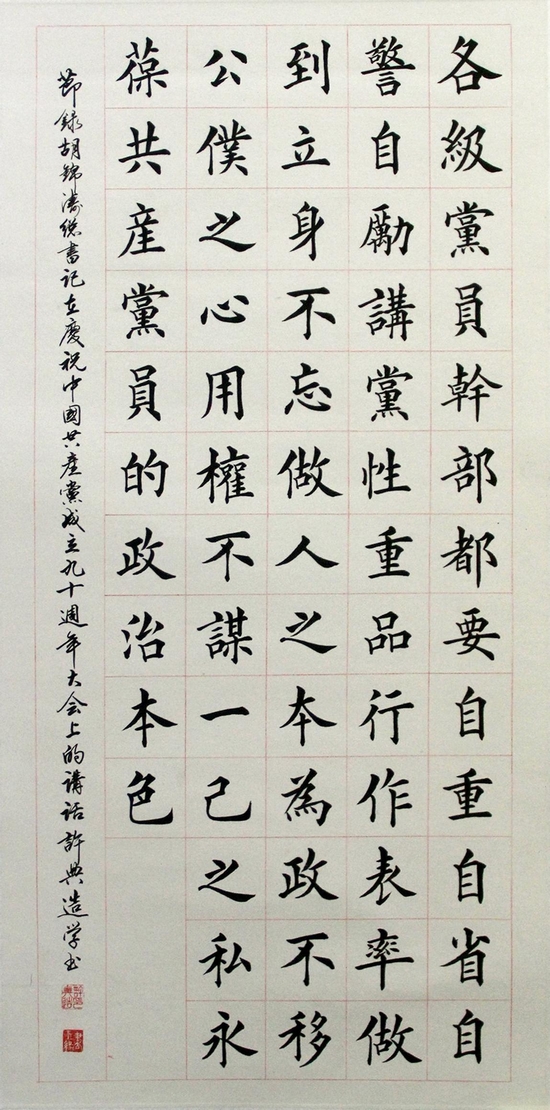 各級黨員幹部都要自重自省自
警自勵講黨性重品行作表率做
到立身不忘做人之本為政不移
公僕之心用權不謀一己之私永
葆共産黨員的政治本色
節錄胡錦濤總書記在慶祝中國共產黨成立九十週年大会上的講話 許典造学书